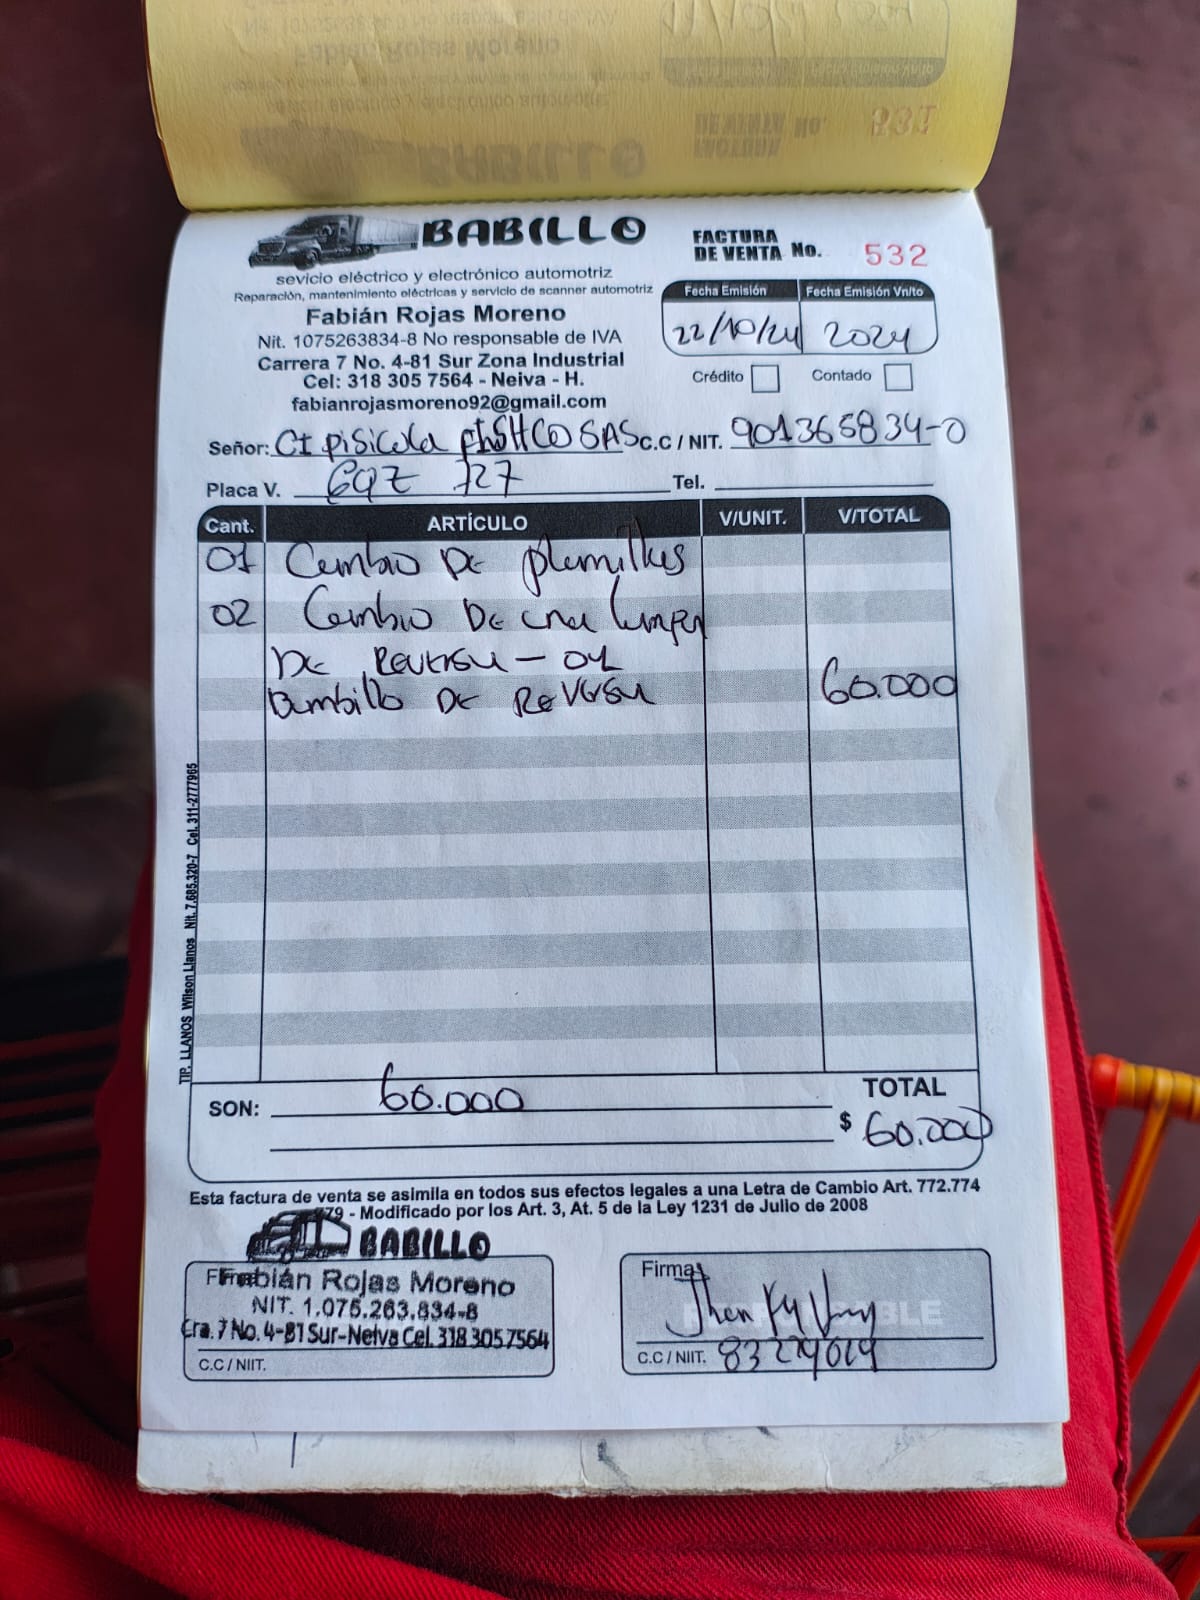 BABILLO
sevicio eléctrico y electrónico automotriz
Reparación, mantenimiento eléctricas y servicio de scanner automotriz
Fabián Rojas Moreno
Nit. 1075263834-8 No responsable de IVA
Carrera 7 No. 4-81 Sur Zona Industrial
Cel: 318 305 7564 - Neiva - H.
fabianrojasmoreno92@gmail.com
FACTURA
DE VENTA No. 532
Fecha Emisión Fecha Emisión Vn/to
22/10/24 2024
Crédito Contado
Señor: CI pisicola FISHCO SAS C.C / NIT. 901365834-0
Placa V. 727 Tel.
Cant. ARTÍCULO V/UNIT. V/TOTAL
01 Cambio De plumillas
02 Cambio De una
De Reversa - 01
Bombillo De Reversa 60.000
TIP. LLANOS Wilson Llanos Nit. 7.685.320-7 Cel. 311-2777965
SON: 60.000
TOTAL
$ 60.000
Esta factura de venta se asimila en todos sus efectos legales a una Letra de Cambio Art. 772.774
779 - Modificado por los Art. 3, At. 5 de la Ley 1231 de Julio de 2008
BABILLO
Fabián Rojas Moreno
NIT. 1.075.263.834-8
Cra. 7 No. 4-81 Sur-Neiva Cel. 318 305 7564
C.C / NIIT.
Firma
Jhon
C.C / NIIT.